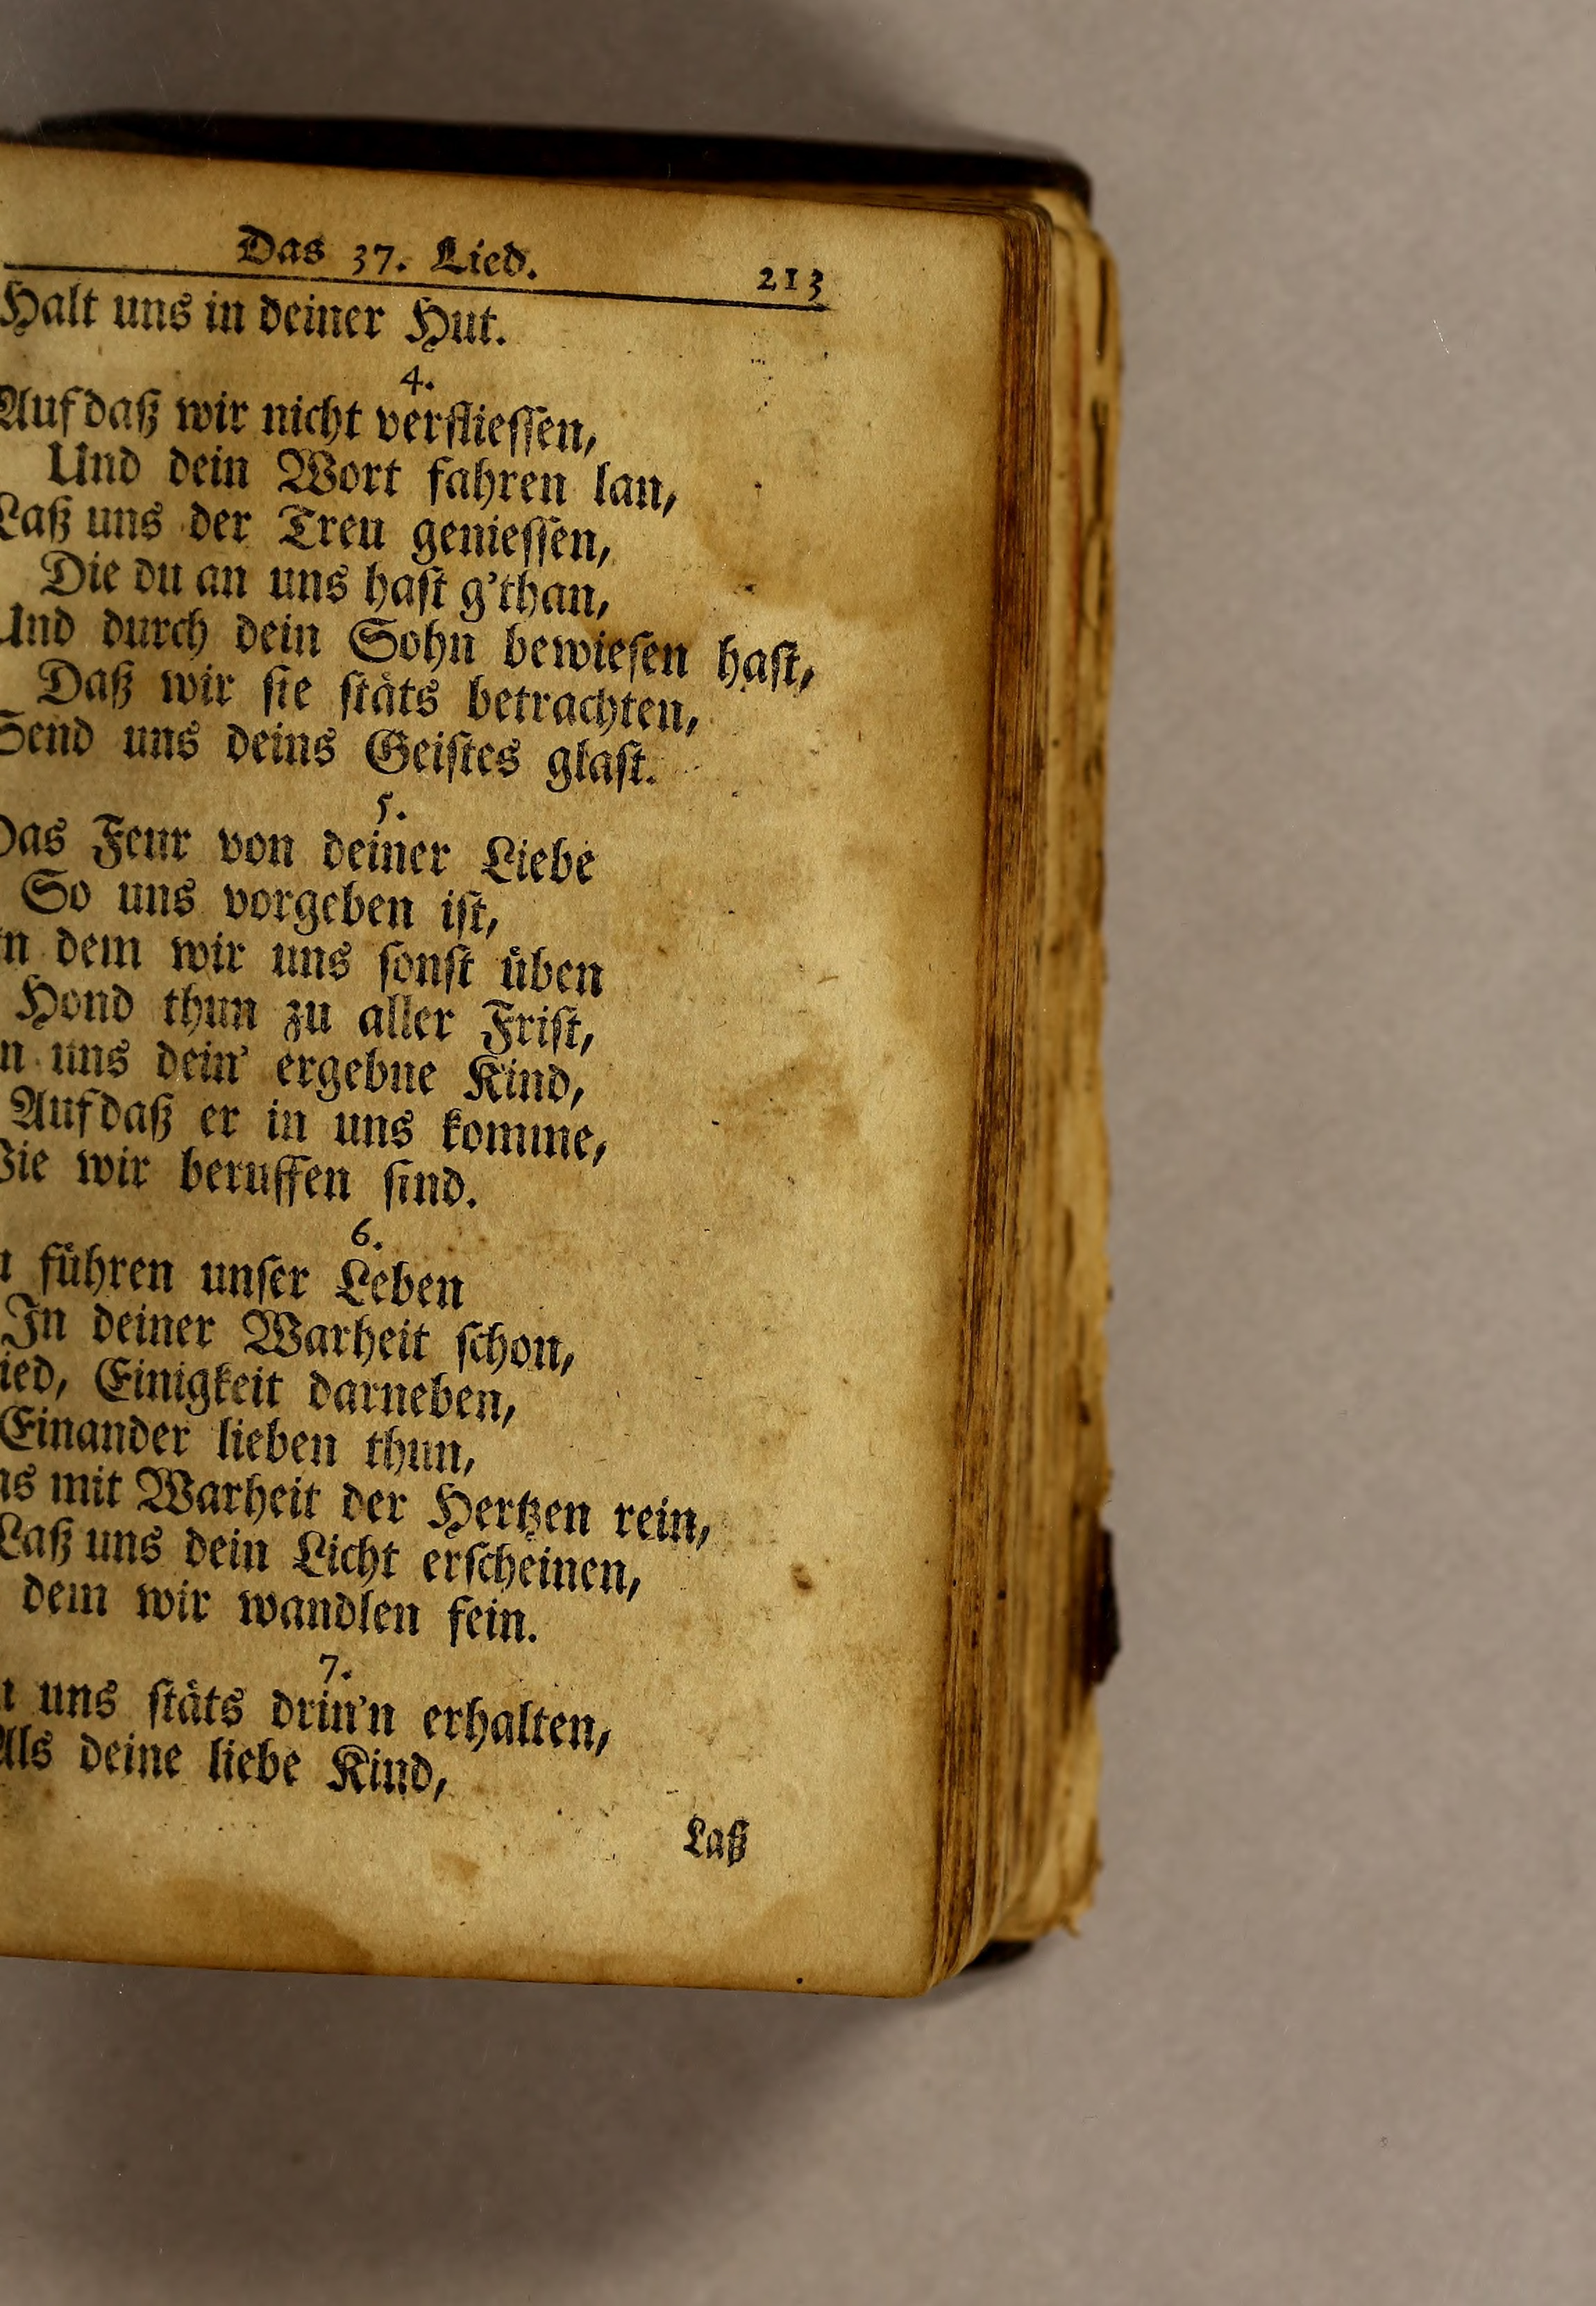 Das 37. Lied. 213
Halt uns in deiner Hut.
4.
Auf daß wir nicht verfliessen,
Und dein Wort fahren lan,
Laß uns der Treu geniessen,
Die du an uns hast g'than,
Und durch dein Sohn bewiesen hast,
Daß wir sie stäts betrachten,
Send uns deins Geistes glast.
5.
Das Feur von deiner Liebe
So uns vorgeben ist,
dem wir uns sonst üben
Hond thun zu aller Frist,
uns dein' ergebne Kind,
Auf daß er in uns komme,
Wie wir beruffen sind.
6.
führen unser Leben
In deiner Warheit schon,
Einigkeit darneben,
Einander lieben thun,
mit Warheit der Hertzen rein,
Laß uns dein Licht erscheinen,
dem wir wandlen fein.
7.
uns stäts drin'n erhalten,
Als deine liebe Kind,
Laß